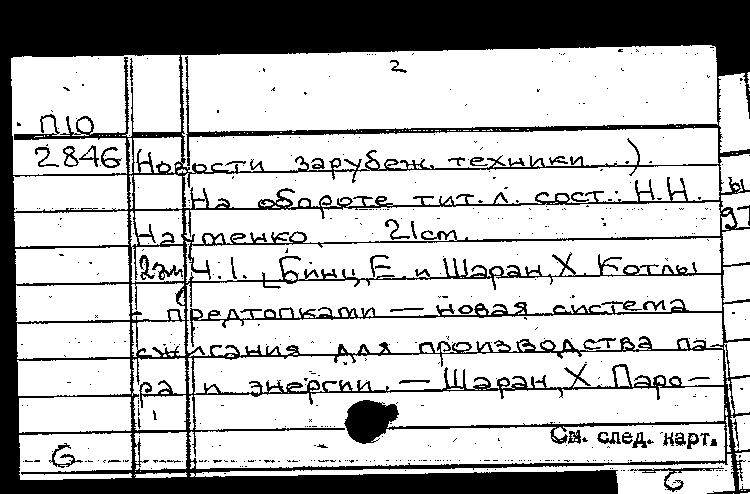 2
П10
2846 Новости зарубеж. техники...).
На обороте тит. л. сост.: Н.Н.
Науменко. 21 cm.
2 эк Ч. 1. Бинц, Е. и Шаран, Х. Котлы
с предтопками — новая система
сжигания для производства па-
ра и энергии. — Шаран, Х. Паро-
См. след. карт.
6
ы
97
6